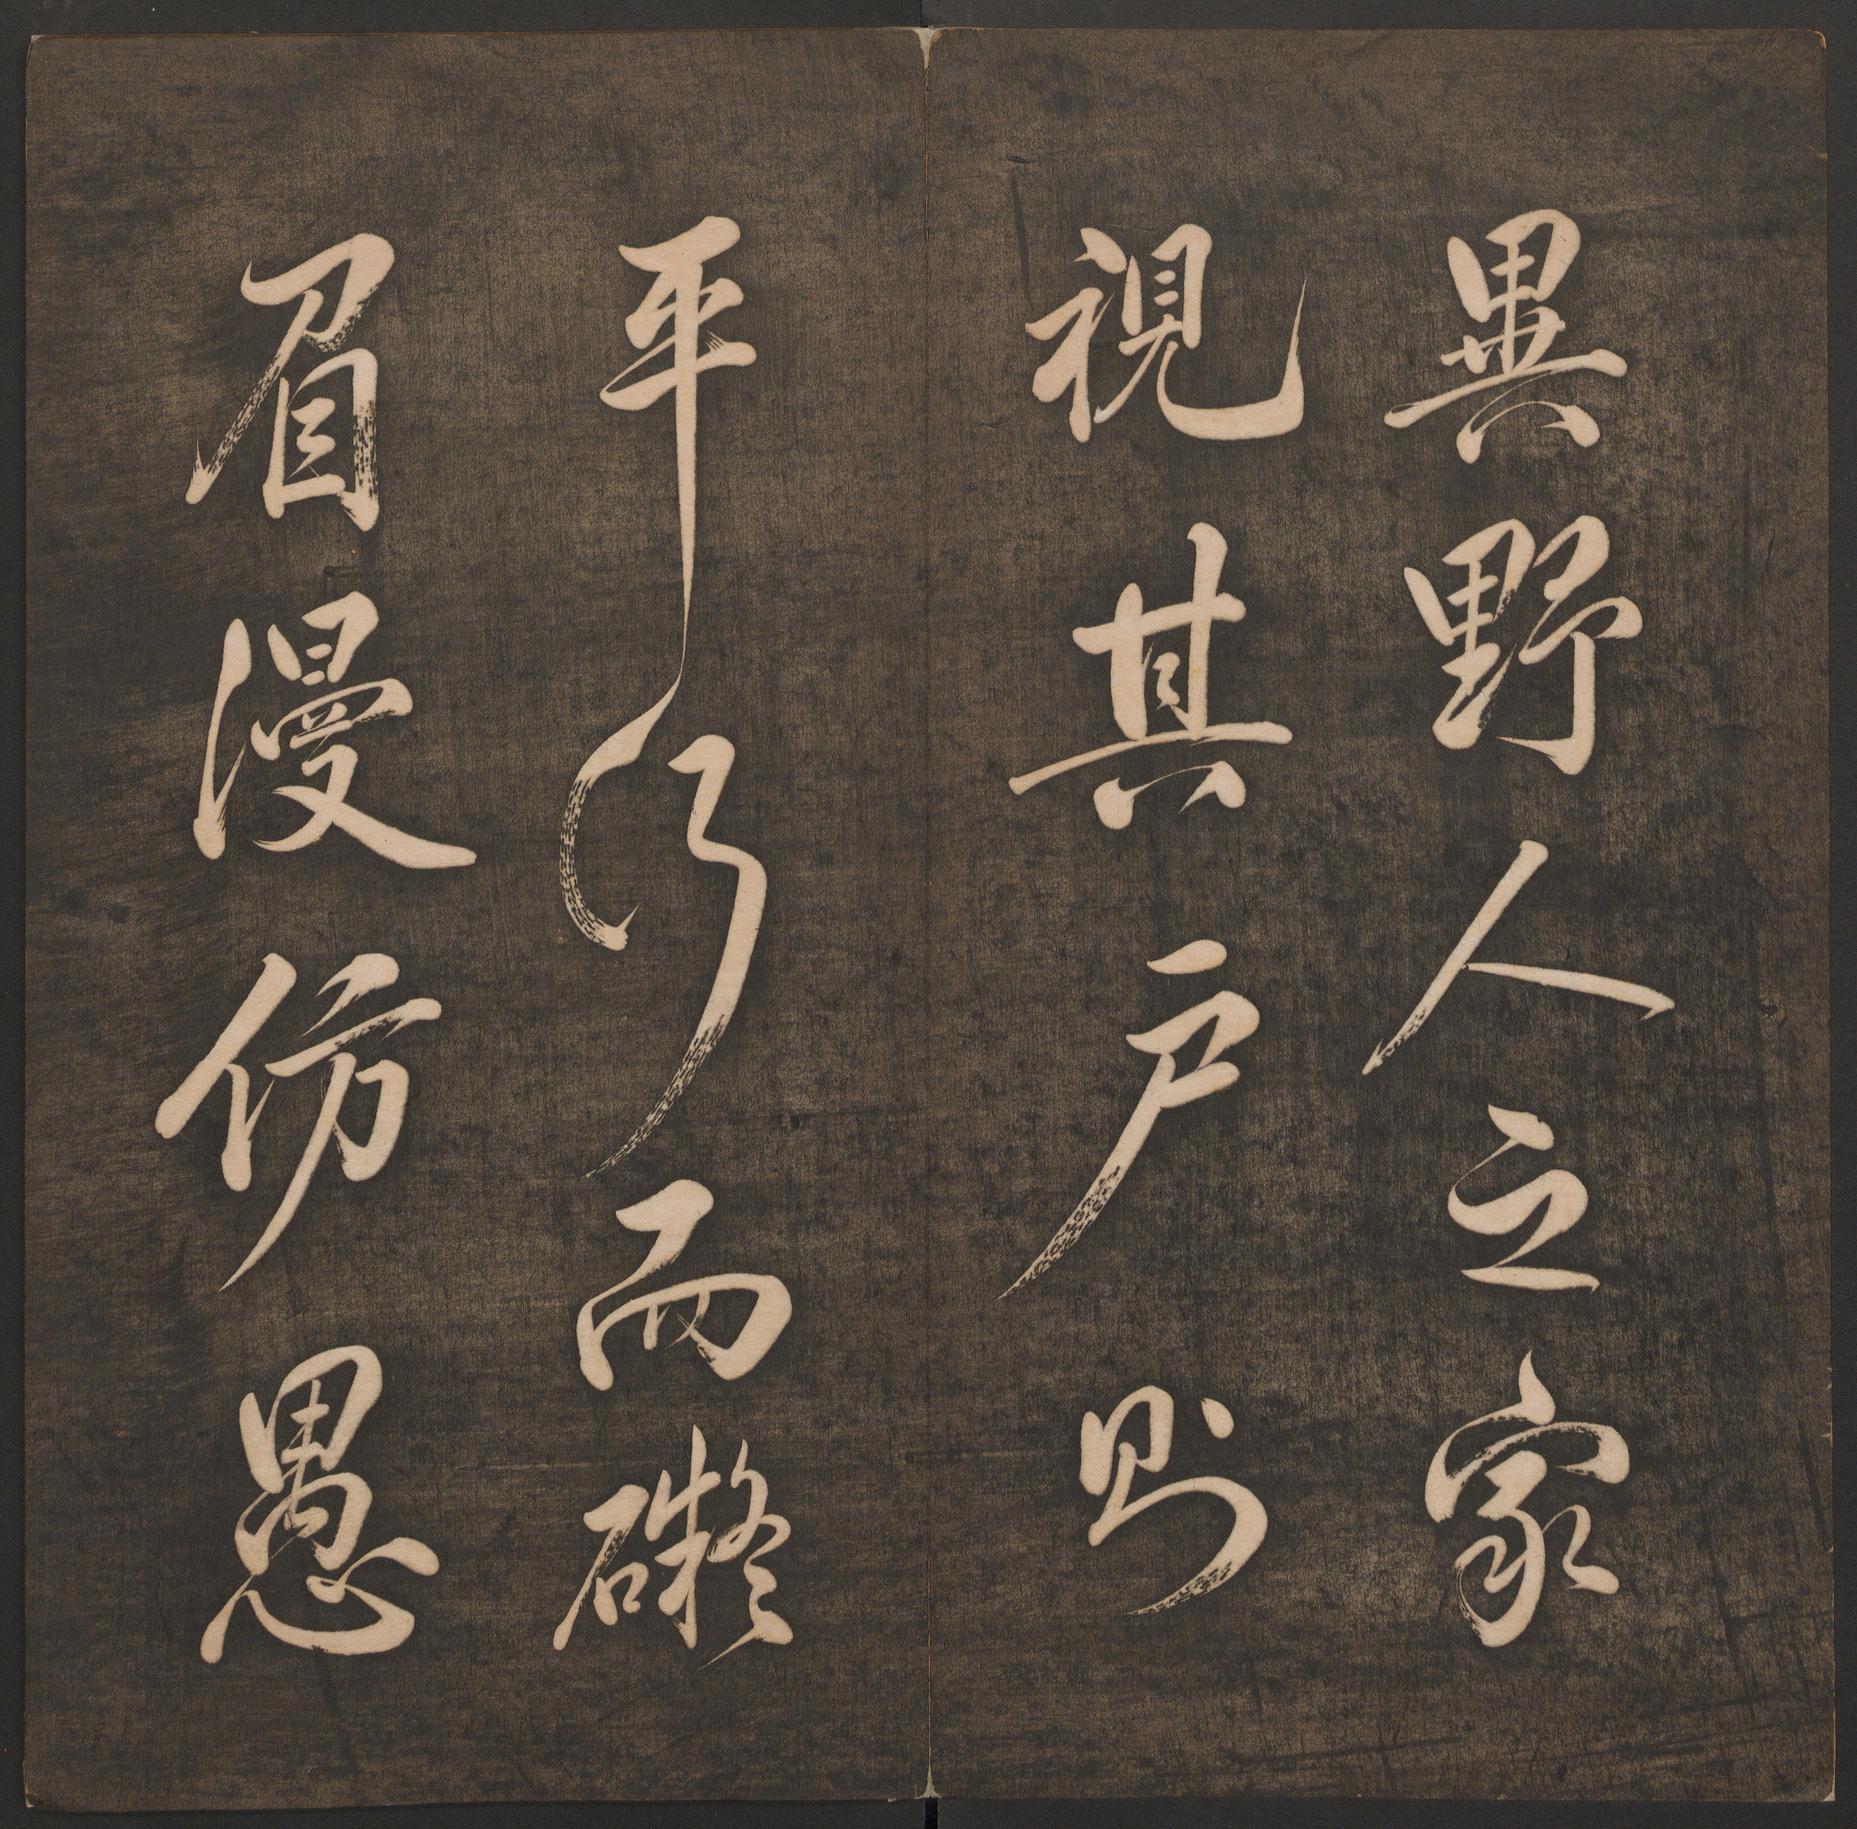 異野人之家
視其戶則
平行而礙
眉漫仿愚